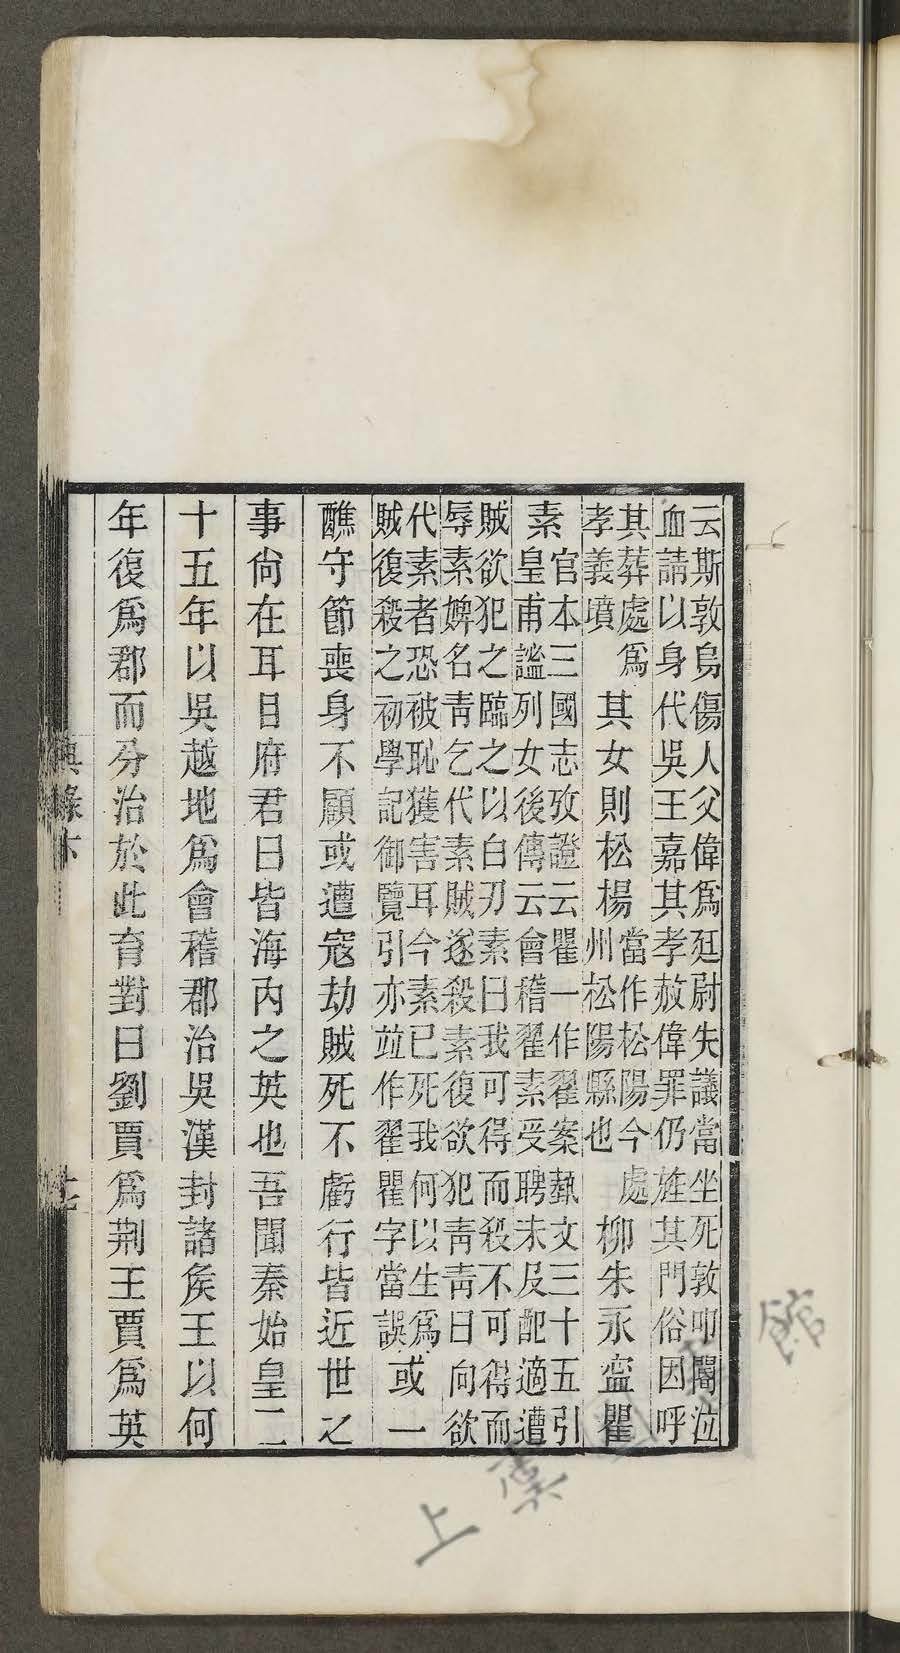 云斯敦烏傷人父偉爲廷尉失議當坐死敦叩閽泣
血請以身代吳王嘉其孝赦偉罪仍旌其門俗因呼
其葬處爲
孝義墳
其女則松楊
當作松陽今處
州松陽縣也
柳朱永寍瞿
素
官本三國志攷證云瞿一作翟案藝文三十五引
皇甫謐列女後傳云會稽翟素受聘未及配適遭
賊欲犯之臨之以白刃素曰我可得而殺不可得而
辱素婢名青乞代素賊遂殺素復欲犯青青曰向欲
代素者恐被恥獲害耳今素已死我何以生爲
賊復殺之初學記御覽引亦竝作翟瞿字當誤
或一
醮守節喪身不顧或遭寇劫賊死不虧行皆近世之
事尙在耳目府君曰皆海內之英也吾聞秦始皇二
十五年以吳越地爲會稽郡治吳漢封諸矦王以何
年復爲郡而分治於此育對曰劉賈爲荆王賈爲英
典錄下
上虞圖書館